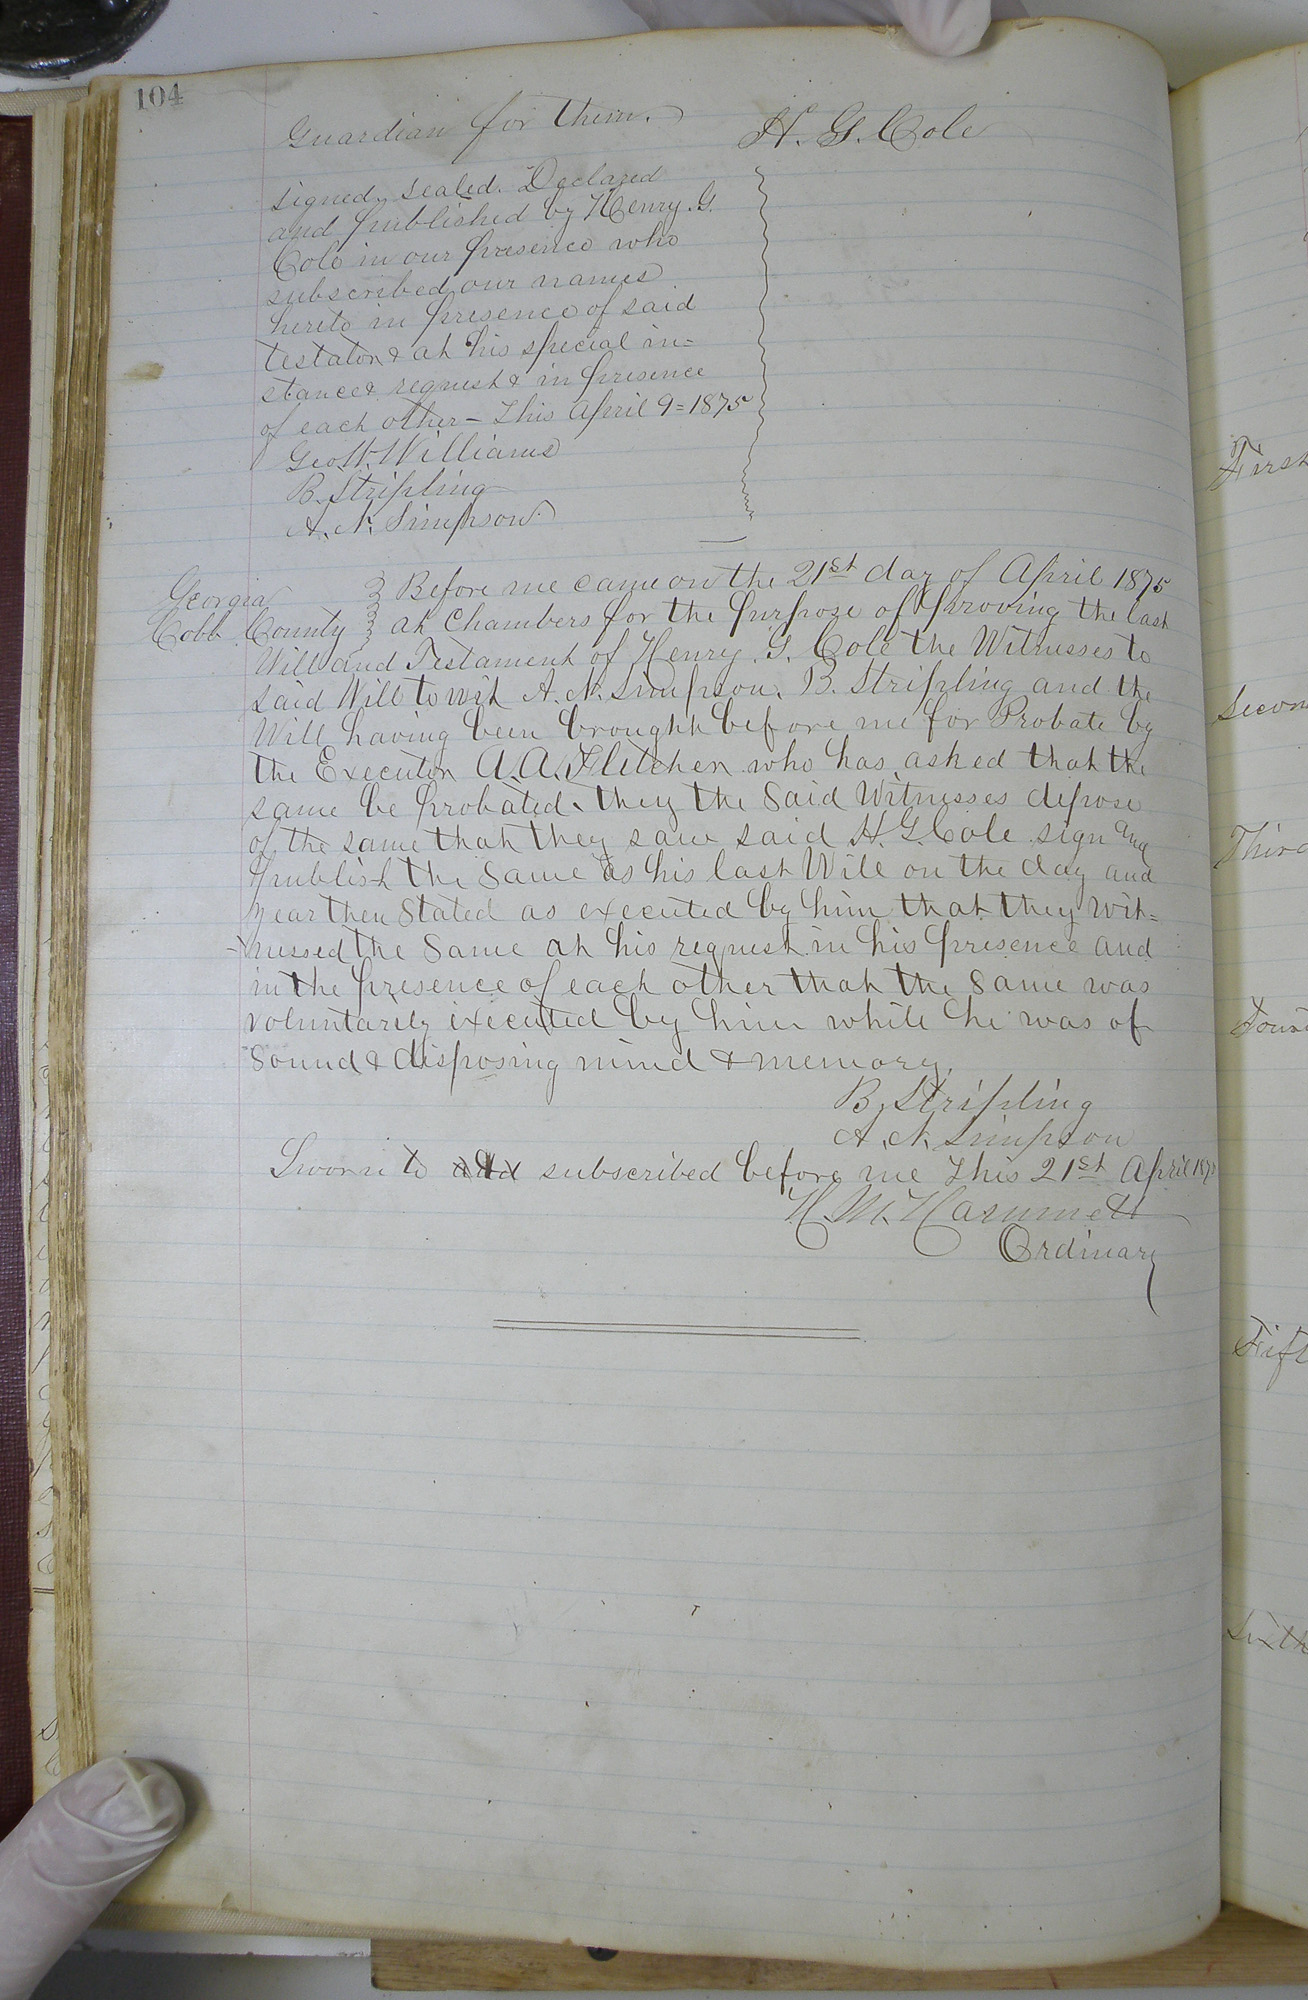 104
Guardian for them.
H. G. Cole
signed, sealed. Declared
and published by Henry. G.
Cole in our presence who
subscribed our names
hereto in presence of said
testator & at his special in=
stance & request & in presence
of each other – This April 9 = 1875
Geo. W. Williams
B. Stripling
A. N. Simpson
Georgia
Cobb County
Before me came on the 21st day of April 1875
at Chambers for the purpose of proving the last
Will and Testament of Henry. G. Cole the Witnesses to
said Will to wit A. N. Simpson. B. Stripling and the
Will having been brought before me for Probate by
the Executor A. A. Fletcher who has asked that the
same be probated. they the Said Witnesses depose
of the same that they saw said H. G. Cole sign and
publish the Same as his last Will on the day and
year then Stated as executed by him that they wit=
nessed the Same at his request in his presence and
in the presence of each other that the Same was
voluntarily executed by him while he was of
Sound & disposing mind & memory.
B. Stripling
A. N. Simpson
Sworn to and subscribed before me This 21st April 1875
H. M. Hammett
Ordinary
First
Secon
Third
Four
Fift
Sixth